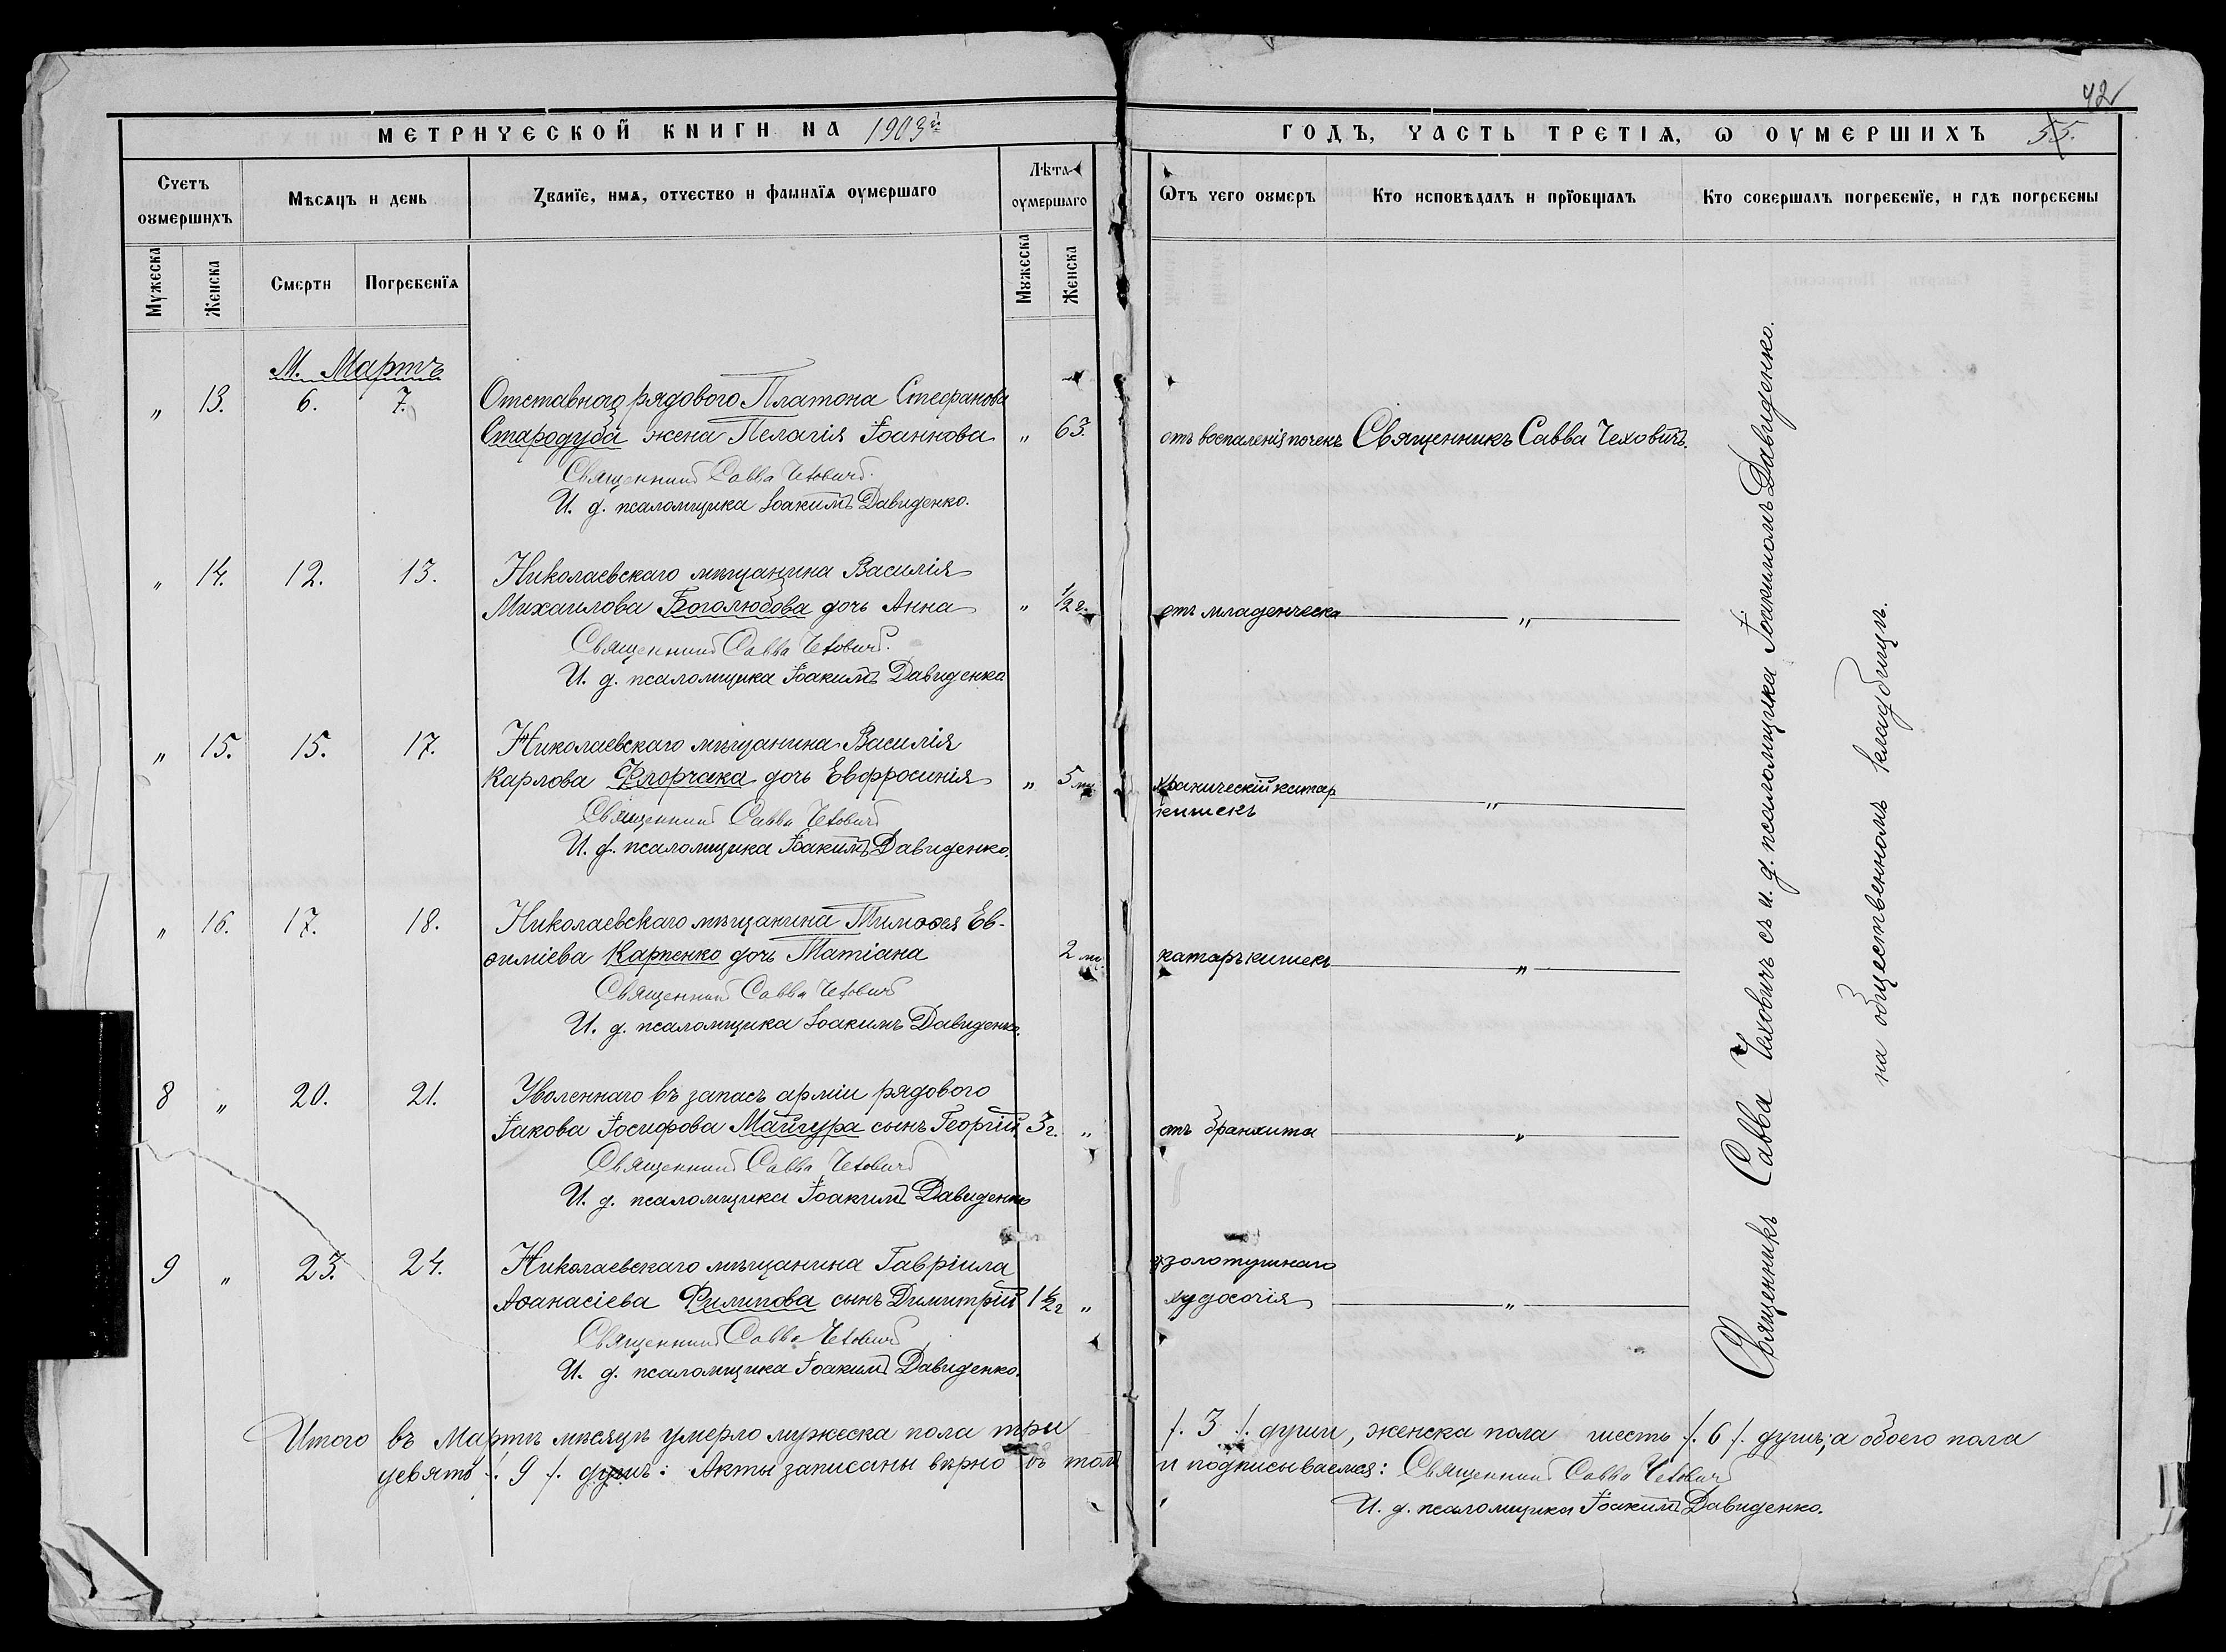 42
МЕТРИЧЕСКОЙ КНИГИ НА 1903й ГОДЪ, ЧАСТЬ ТРЕТІѦ, Ѡ ОУМЕРШИХЪ 55.
Счетъ оумершихъ
Мѣсѧцъ и день
Званіе, имѧ, отчество и фамиліѧ оумершаго
Лѣта оумершаго
Ѿтъ чего оумеръ
Кто исповѣдалъ и пріобщалъ
Кто совершалъ погребеніе, и гдѣ погребены
Мужеска
Женска
Смерти
Погребеніѧ
Мужеска
Женска
М. Мартъ
„ 13. 6. 7. Отставного рядового Платона Стефанова
Стародуба жена Пелагія Іоаннова „ 63. отъ воспаленія почекъ Священникъ Савва Чеховичъ.
Священникъ Савва Чеховичъ.
И. д. псаломщика Іоакимъ Давиденко.
„ 14. 12. 13. Николаевскаго мѣщанина Василія
Михаилова Боголюбова дочь Анна „ 1/2 г. отъ младенческа „
Священникъ Савва Чеховичъ.
И. д. псаломщика Іоакимъ Давиденко
„ 15. 15. 17. Николаевскаго мѣщанина Василія
Карлова Флорчака дочь Евфросинія „ 5 м. хроническій катар „
кишекъ
Священникъ Савва Чеховичъ
И. д. псаломщика Іоакимъ Давиденко.
„ 16. 17. 18. Николаевскаго мѣщанина Тимоѳея Ев-
ѳиміева Карпенко дочь Татіана 2 м. катаръ кишекъ „
Священникъ Савва Чеховичъ
И. д. псаломщика Іоакимъ Давиденко.
8 „ 20. 21. Уволеннаго въ запасъ арміи рядового
Іакова Іосифова Майгура сынъ Георгій 3 г. „ отъ бранхита „
Священникъ Савва Чеховичъ
И. д. псаломщика Іоакимъ Давиденко
9 „ 23. 24. Николаевскаго мѣщанина Гавріила золотушнаго
Аѳанасіева Филипова сынъ Димитрій 1 1/2 г „ худосочія „
Священникъ Савва Чеховичъ
И. д. псаломщика Іоакимъ Давиденко.
Священникъ Савва Чеховичъ съ и. д. псаломщика Іоакимомъ Давиденко.
на общественномъ кладбищѣ.
Итого въ Мартѣ мѣсяцѣ умерло мужеска пола три /. 3 /. души, женска пола шесть /. 6 /. душъ; а обоего пола
девять /. 9 /. душъ: Акты записаны вѣрно въ томъ и подписываемся: Священникъ Савва Чеховичъ
И. д. псаломщика Іоакимъ Давиденко.